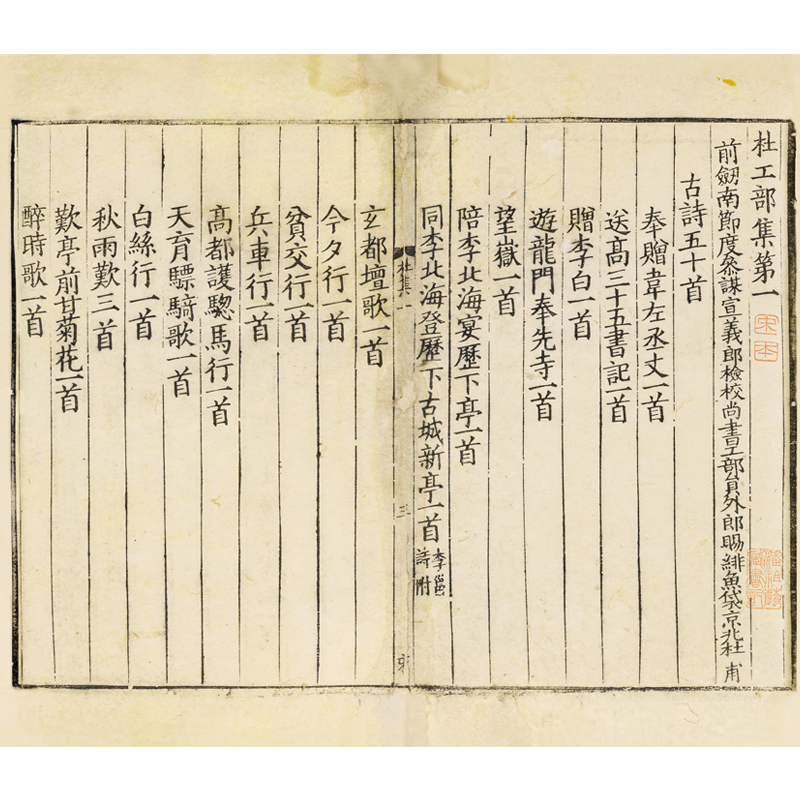 杜工部集第一
宋本
前劔南節度叅謀宣義郎檢校尚書工部員外郎賜緋魚袋京兆杜甫
古詩五十首
奉贈韋左丞丈一首
送高三十五書記一首
贈李白一首
遊龍門奉先寺一首
望嶽一首
陪李北海宴歷下亭一首
同李北海登歷下古城新亭一首
李邕
詩附
杜集一
三
玄都壇歌一首
今夕行一首
貧交行一首
兵車行一首
髙都護驄馬行一首
天育驃騎歌一首
白絲行一首
秋雨歎三首
歎亭前甘菊花一首
醉時歌一首